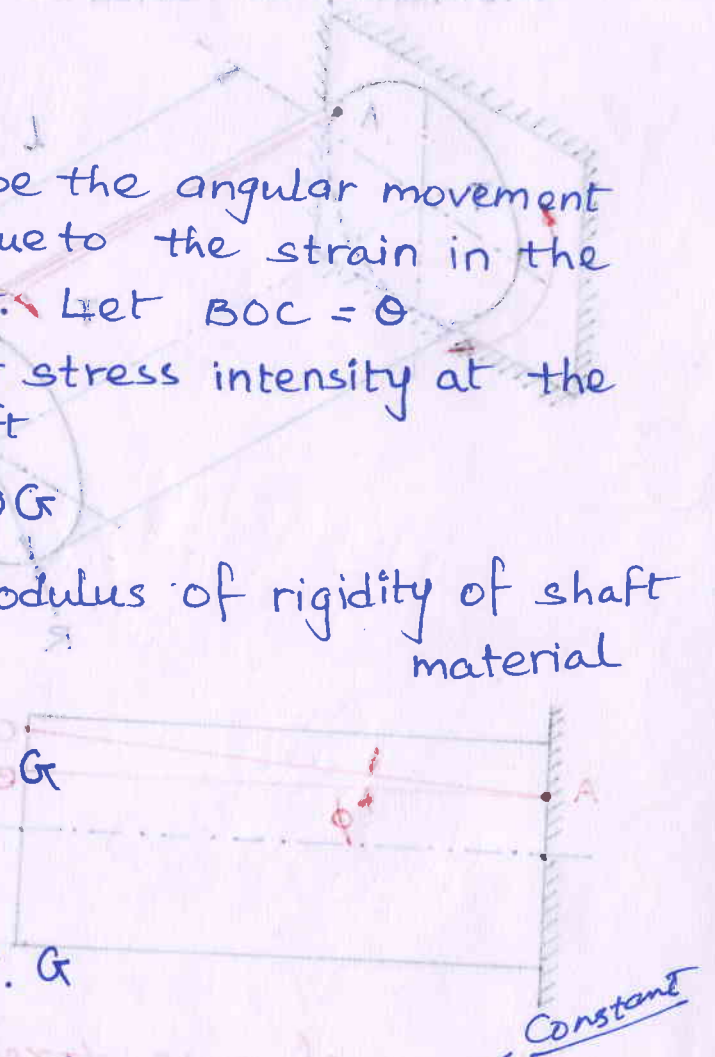 A
be the angular movement
ue to the strain in the
. Let BOC = θ
stress intensity at the
ft
G
odulus of rigidity of shaft
material
G
A
ϕ
. G
Constant